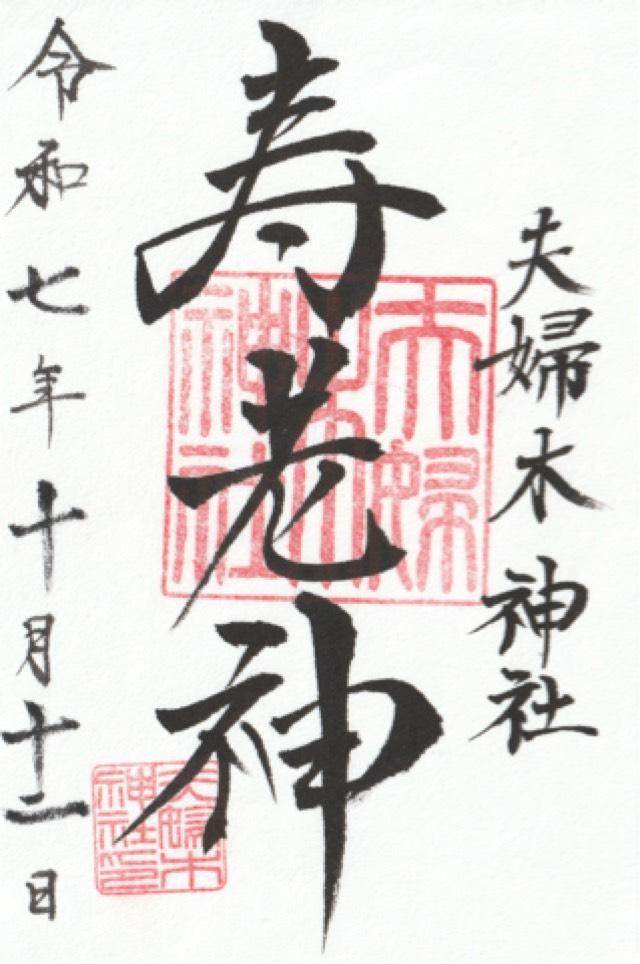 夫婦木神社
寿老神
令和七年十月十二日
夫婦木神社
夫婦木神社印